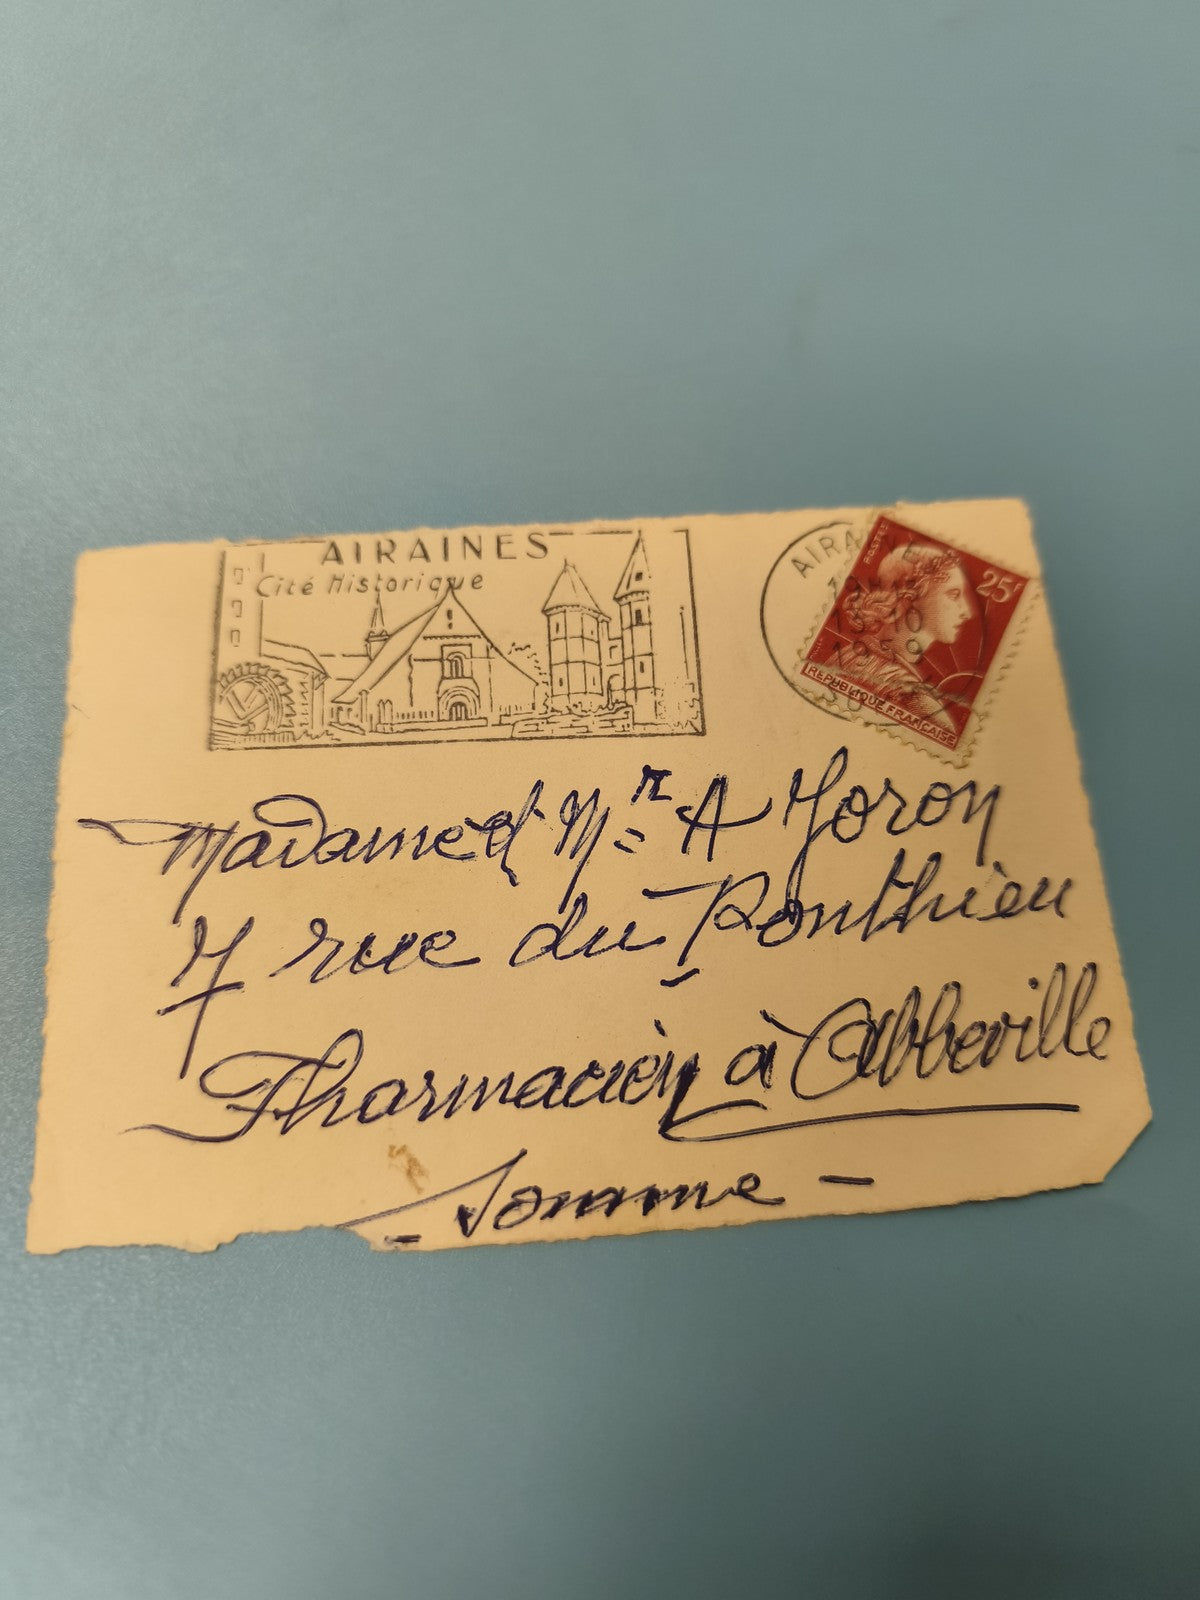 AIRAINES
Cité Historique
POSTES
25F
REPUBLIQUE FRANÇAISE
AIRA
10
1959
Madame et Mr A Joron
7 rue du Ponthieu
Pharmacien à Abbeville
- Somme -